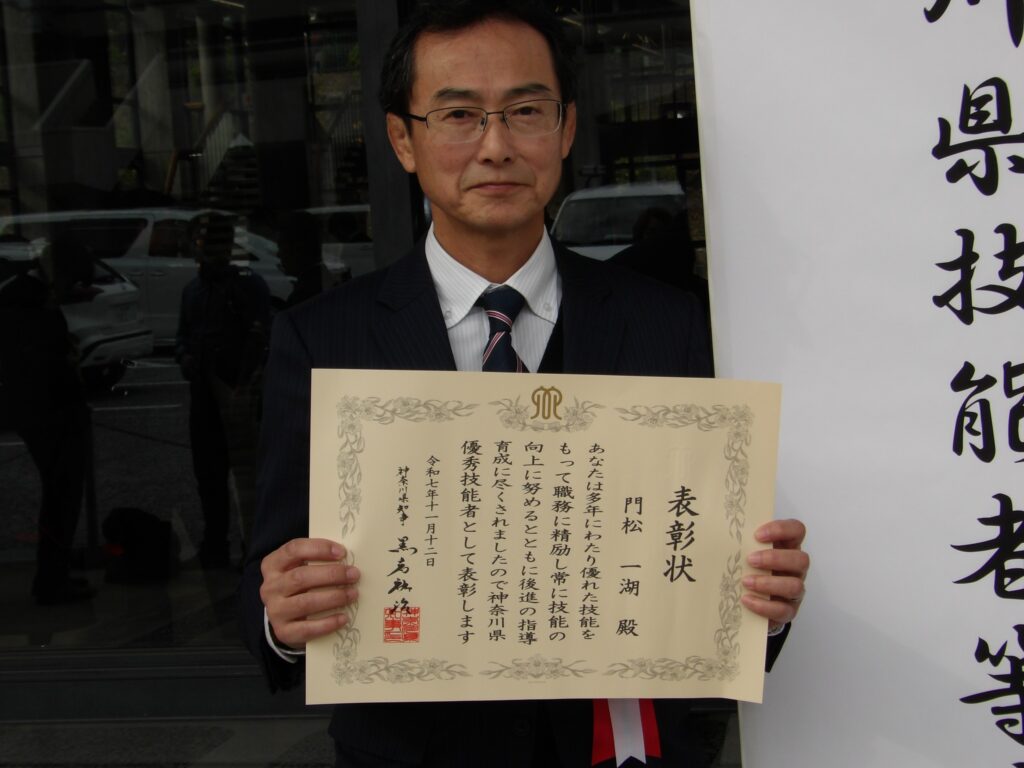 表彰状
門松 一湖 殿
あなたは多年にわたり優れた技能を
もって職務に精励し常に技能の
向上に努めるとともに後進の指導
育成に尽くされましたので神奈川県
優秀技能者として表彰します
令和七年十一月十二日
神奈川県知事 黒岩祐治
県技能者等